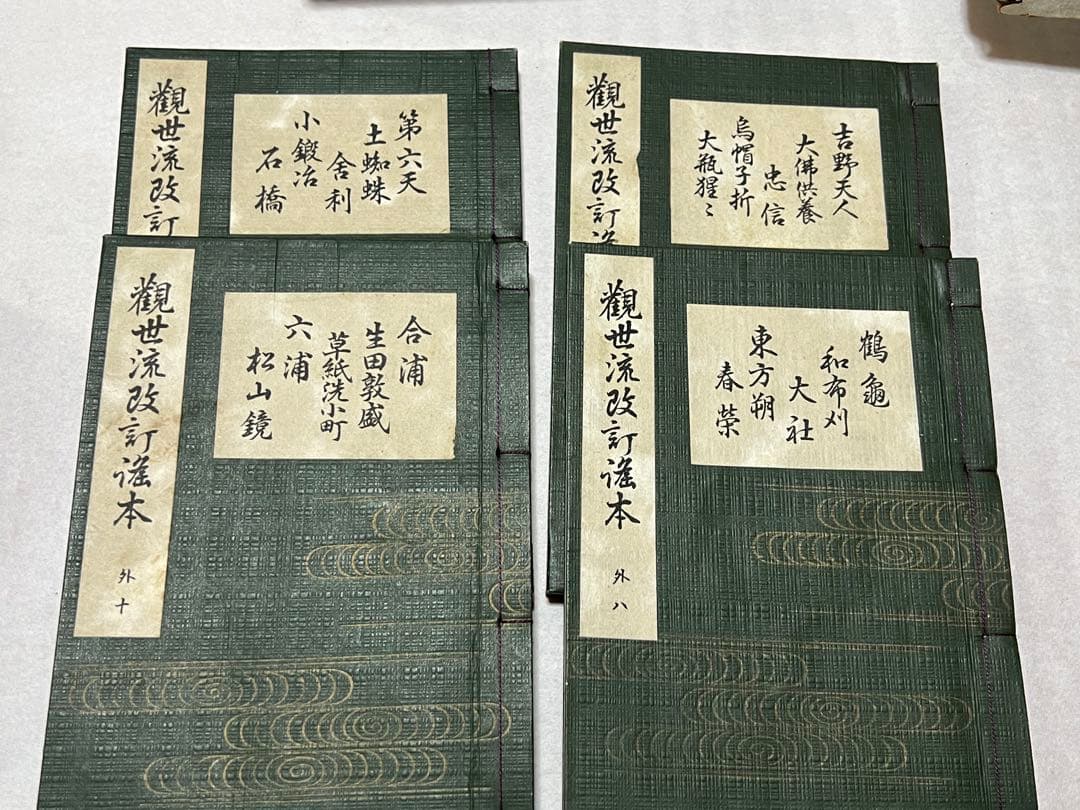 觀世流改訂
第六天
土蜘蛛
舍利
小鍛冶
石橋
觀世流改訂
吉野天人
大佛供養
忠信
烏帽子折
大瓶猩〻
觀世流改訂謠本
外十
合浦
生田敦盛
草紙洗小町
六浦
松山鏡
觀世流改訂謠本
外八
鶴龜
和布刈
大社
東方朔
春榮